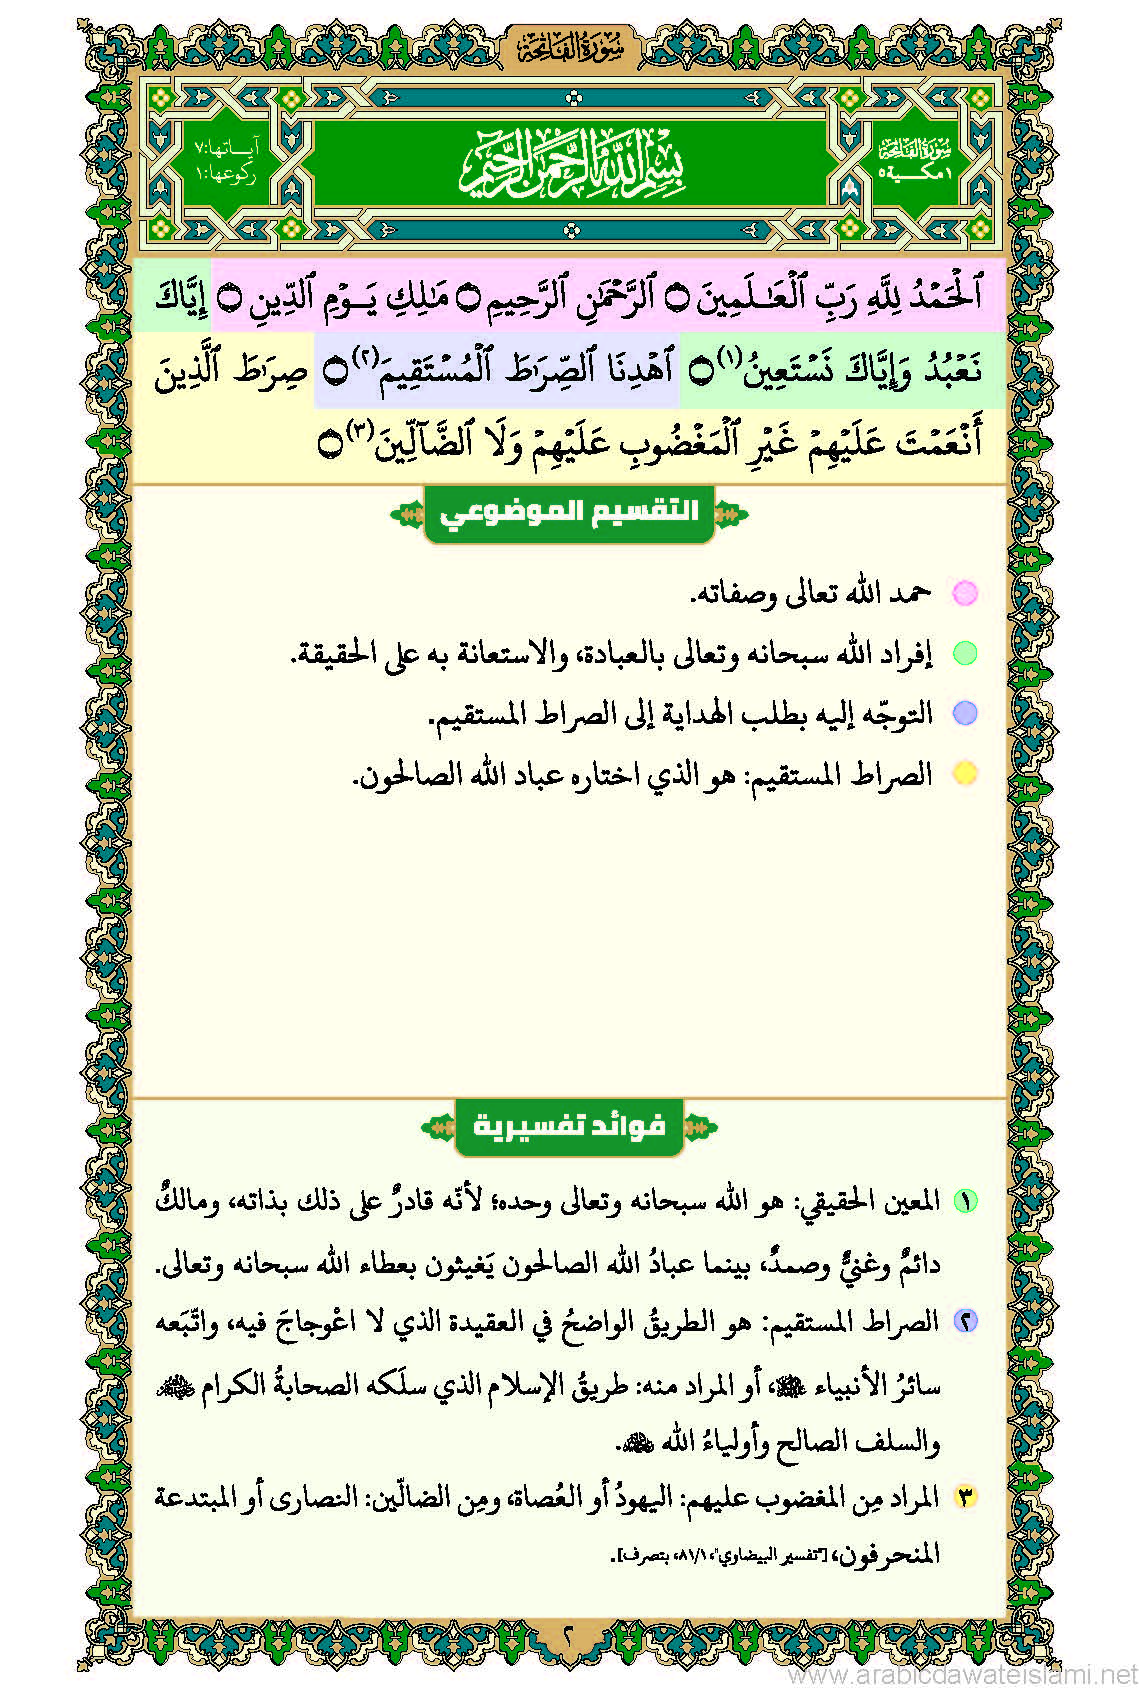 سُورَةُ الفَاتِحَة
سُورَةُ الفَاتِحَة
١ مكية ٥
بِسْمِ اللهِ الرَّحْمٰنِ الرَّحِيْمِ
آياتها:٧
ركوعها:١
ٱلْحَمْدُ لِلَّهِ رَبِّ ٱلْعَـٰلَمِينَ ۝ ٱلرَّحْمَـٰنِ ٱلرَّحِيمِ ۝ مَـٰلِكِ يَـوْمِ ٱلدِّينِ ۝ إِيَّاكَ
نَعْبُدُ وَإِيَّاكَ نَسْتَعِينُ(١) ۝ ٱهْدِنَا ٱلصِّرَٰطَ ٱلْمُسْتَقِيمَ(٢) ۝ صِرَٰطَ ٱلَّذِينَ
أَنْعَمْتَ عَلَيْهِمْ غَيْرِ ٱلْمَغْضُوبِ عَلَيْهِمْ وَلَا ٱلضَّآلِّينَ(٣) ۝
التقسيم الموضوعي
حمد الله تعالى وصفاته.
إفراد الله سبحانه وتعالى بالعبادة، والاستعانة به على الحقيقة.
التوجّه إليه بطلب الهداية إلى الصراط المستقيم.
الصراط المستقيم: هو الذي اختاره عباد الله الصالحون.
فوائد تفسيرية
١ المعين الحقيقي: هو الله سبحانه وتعالى وحده؛ لأنّه قادرٌ على ذلك بذاته، ومالكٌ
دائمٌ وغنيٌّ وصمدٌ، بينما عبادُ الله الصالحون يَغيثون بعطاء الله سبحانه وتعالى.
٢ الصراط المستقيم: هو الطريقُ الواضحُ في العقيدة الذي لا اعْوجاجَ فيه، واتّبَعه
سائرُ الأنبياء ، أو المراد منه: طريقُ الإسلام الذي سلَكه الصحابةُ الكرام
والسلف الصالح وأولياءُ الله .
٣ المراد مِن المغضوب عليهم: اليهودُ أو العُصاة، ومِن الضالّين: النصارى أو المبتدعة
المنحرفون، ["تفسير البيضاوي"، ٨١/١، بتصرف].
٢
www.arabicdawateislami.net